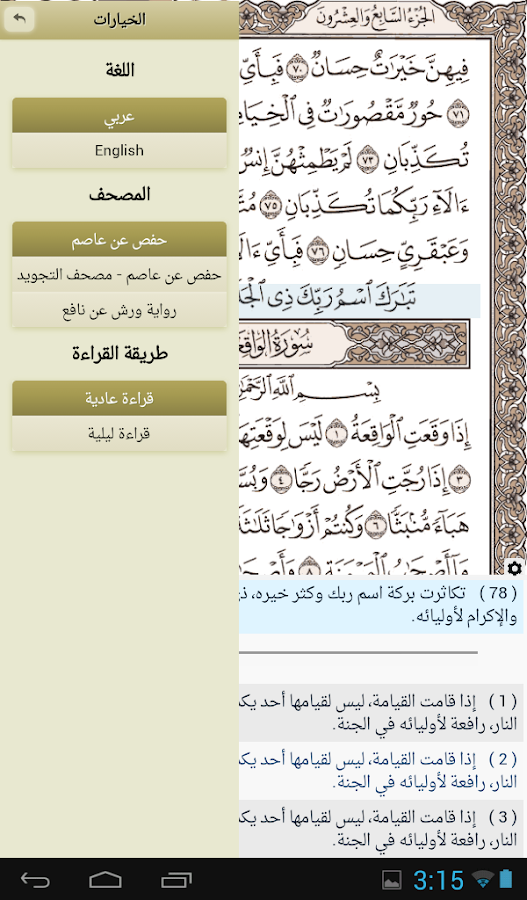 الخيارات
اللغة
عربي
English
المصحف
حفص عن عاصم
حفص عن عاصم - مصحف التجويد
رواية ورش عن نافع
طريقة القراءة
قراءة عادية
قراءة ليلية
الجزء السابع والعشرون
فِيهِنَّ خَيْرَٰتٌ حِسَانٌ ٧٠ فَبِأَيِّ
٧١ حُورٌ مَّقْصُورَٰتٌ فِي ٱلْخِيَامِ
تُكَذِّبَانِ ٧٣ لَمْ يَطْمِثْهُنَّ إِنسٌ
ءَالَآءِ رَبِّكُمَا تُكَذِّبَانِ ٧٥
وَعَبْقَرِيٍّ حِسَانٍ ٧٦ فَبِأَيِّ
تَبَٰرَكَ ٱسْمُ رَبِّكَ ذِي
سُورَةُ الوَاقِعَة
بِسْمِ ٱللَّهِ
إِذَا وَقَعَتِ ٱلْوَاقِعَةُ ١ لَيْسَ لِوَقْعَتِهَا
٣ إِذَا رُجَّتِ ٱلْأَرْضُ رَجًّا ٤
هَبَآءً مُّنۢبَثًّا ٦ وَكُنتُمْ أَزْوَٰجًا ثَلَٰثَةً
( 78 ) تكاثرت بركة اسم ربك وكثر خيره،
والإكرام لأوليائه.
( 1 ) إذا قامت القيامة، ليس لقيامها أحد
النار، رافعة لأوليائه في الجنة.
( 2 ) إذا قامت القيامة، ليس لقيامها أحد
النار، رافعة لأوليائه في الجنة.
( 3 ) إذا قامت القيامة، ليس لقيامها أحد
النار، رافعة لأوليائه في الجنة.
3:15